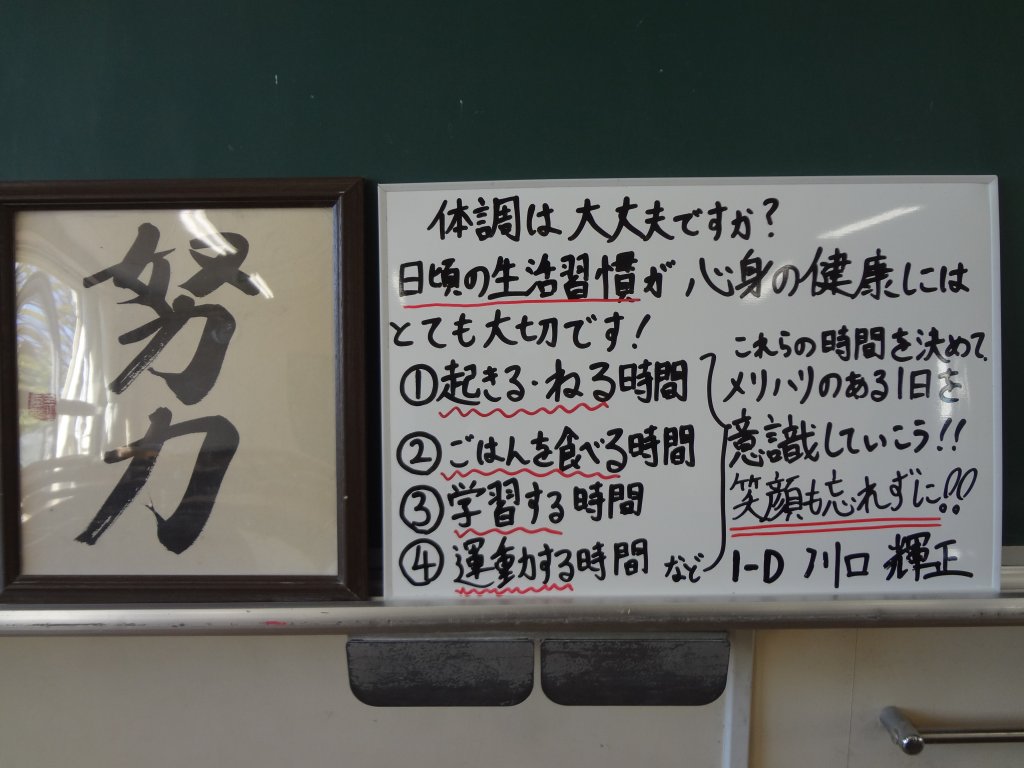 努力
体調は大丈夫ですか?
日頃の生活習慣が心身の健康には
とても大切です!
①起きる・ねる時間
②ごはんを食べる時間
③学習する時間
④運動する時間 など
これらの時間を決めて、
メリハリのある1日を
意識していこう!!
笑顔も忘れずに!!
1-D 川口 輝正